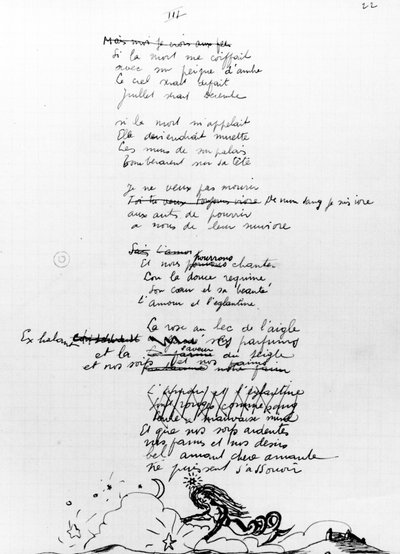 III
22
Mais moi je crois aux fées
Si la mort me coiffait
avec un peigne d'ambre
Le ciel serait
Juillet serait Décembre
si la mort m'appelait
Elle deviendrait muette
Les murs de mon palais
tomberaient sur sa tête
Je ne veux pas mourir
Toi tu veux toujours vivre De mon sang je suis ivre
aux arts de pourrir
a nous de leur survivre
Sais L'amour
Et nous pourrons chanter
Con la douce
Son cœur et sa beauté
L'amour et l'églantine
La rose au bec de l'aigle
Exhalant ses parfums
et la saveur du seigle
et nos soifs et nos faims
et l'églantine
rouges comme sang
mauvaise mine
Et que nos corps ardentes
nos faims et nos désirs
bel amant chère amante
s'assouvir